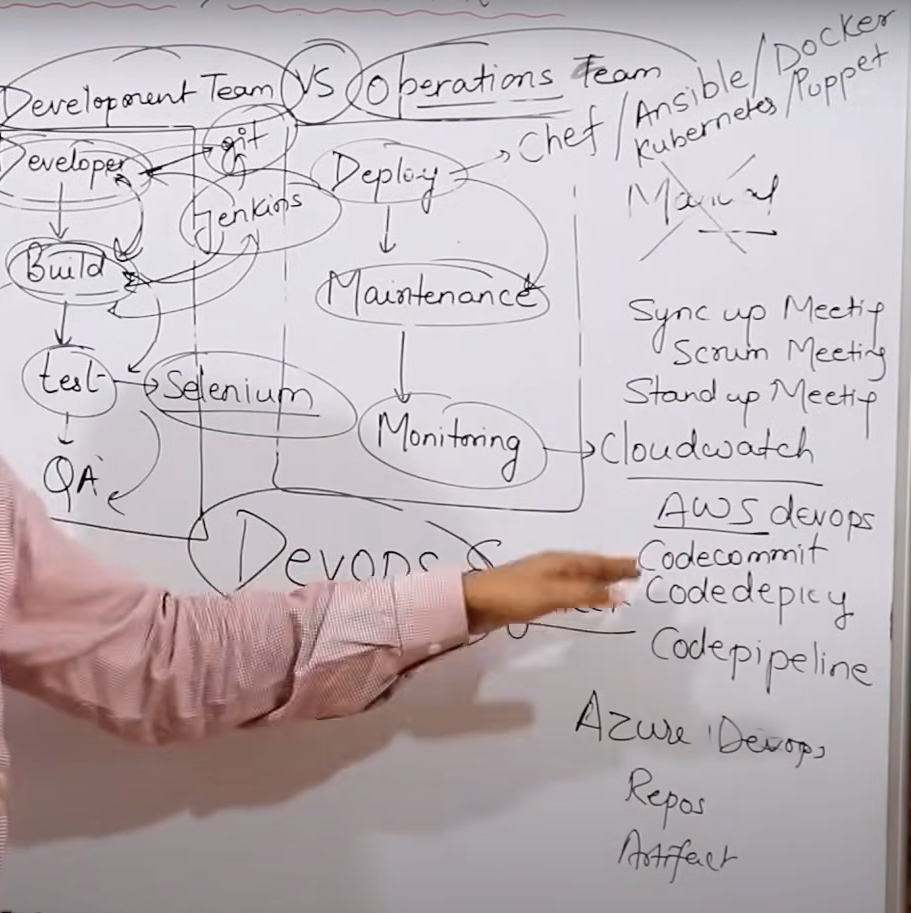 Development Team VS Operations Team
Developer
git
Jenkins
Build
test
Selenium
QA
Deploy
Chef / Ansible / Docker
Kubernetes / Puppet
Manual
Maintenance
Monitoring
Cloudwatch
Sync up Meetig
Scrum Meeting
Stand up Meetig
AWS devops
Codecommit
Codedeploy
Codepipeline
Devops
Azure Devops
Repos
Artifact